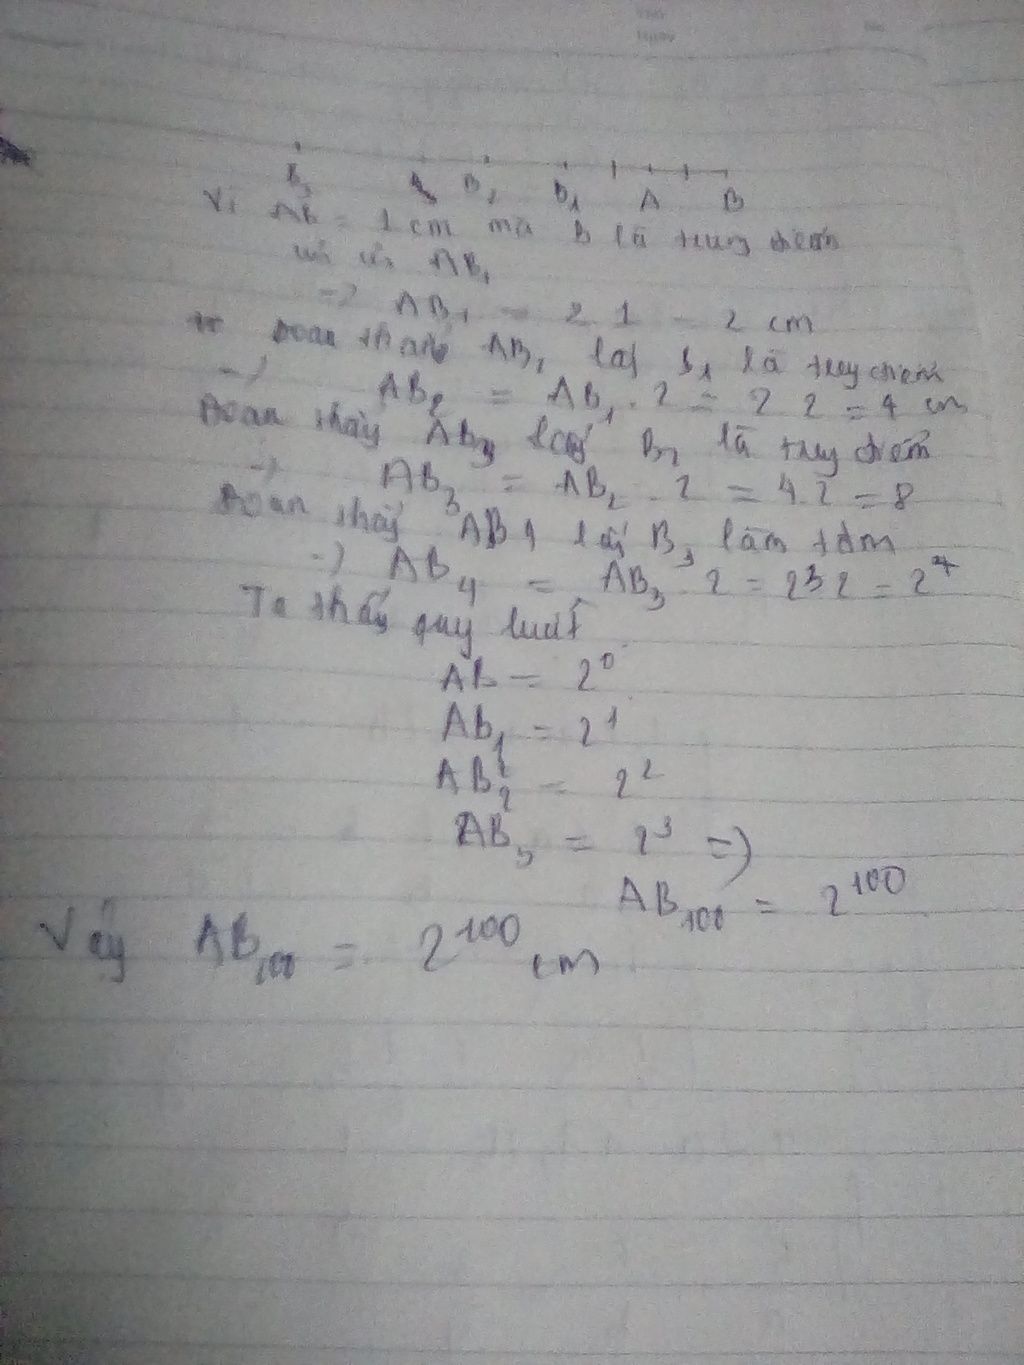 B₃ A B₂ B₁ A B
Vì AB = 1 cm mà B là trung điểm
AB₁
=> AB₁ = 2 1 = 2 cm
Đoạn thẳng AB₂ lấy B₁ là trung điểm
=> AB₂ = AB₁ . 2 = 2 2 = 4 cm
Đoạn thẳng AB₃ lấy B₂ là trung điểm
=> AB₃ = AB₂ . 2 = 4.2 = 8
Đoạn thẳng AB₄ lấy B₃ làm tâm
=> AB₄ = AB₃ . 2 = 2³ 2 = 2⁴
Ta thấy quy luật
AB = 2⁰
AB₁ = 2¹
AB₂ = 2²
AB₃ = 2³ =>
AB₁₀₀ = 2¹⁰⁰
Vậy AB₁₀₀ = 2¹⁰⁰ cm